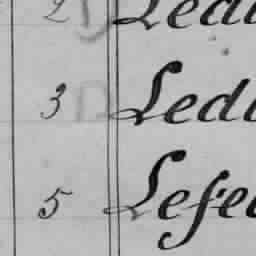 2 Ledu
3 Ledu
5 Lefe